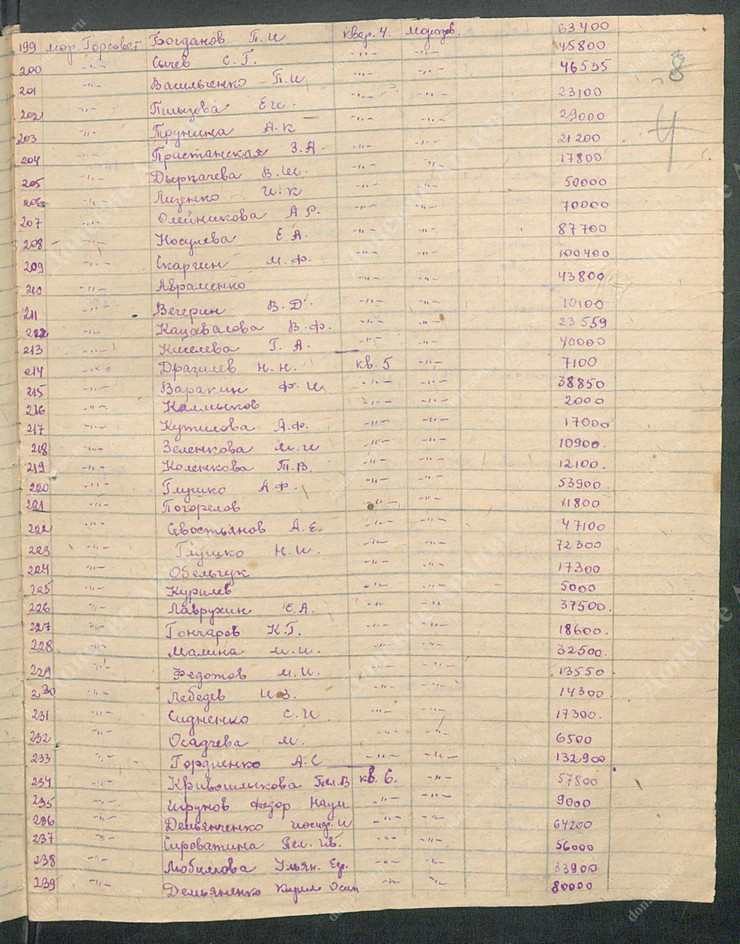 199 мор. Горсовет Богданов П.И квар. 4. морозов. 63400
200 -"- Сычев С.Г. -"- -"- 45800
201 Васильченко П.И -"- -"- 46535
202 -"- Пшызова Е.И. -"- -"- 23100
203 -"- Трунина А.К -"- -"- 29000
204 -"- Пристанская З.А. -"- -"- 21200
205 -"- В.Ш. -"- -"- 17800
206 -"- Лизенко И.К -"- -"- 50000
207 -"- Олейникова А.Р. -"- -"- 70000
208 -"- Носулева Е.А. -"- -"- 87700
209 -"- Скаргин М.Ф. -"- -"- 100400
210 -"- Авраменко -"- -"- 43800
211 -"- Вегерин В.Д. -"- -"- 10100
212 -"- В.Ф. -"- -"- 23559
213 -"- Киселева Г.А. -"- 40000
214 -"- Дразилев Н.Н. кв. 5 -"- 7100
215 -"- Варакин Ф.И. -"- -"- 38850
216 -"- Калмыков -"- -"- 2000
217 -"- Кутилова А.Ф. -"- -"- 17000
218 -"- Зеленкова М.И -"- -"- 10900.
219 -"- Коленкова Т.В. -"- -"- 12100.
220 -"- Глушко А.Ф. -"- -"- 53900.
221 -"- Погорелов -"- -"- 11800
222 -"- Севостьянов А.Е. -"- -"- 47100
223 -"- Глушко Н.И. -"- -"- 72300
224 -"- Обельчук -"- -"- 17300
225 -"- Курилев -"- -"- 5000
226 -"- Лаврухин Е.А. -"- -"- 37500.
227 -"- Гончаров К.Г. -"- -"- 18600.
228 -"- Малина М.И. -"- -"- 32500.
229 -"- Федотов М.И. -"- -"- 13550
230 -"- Лебедев И.З. -"- -"- 14300
231 -"- Сидненко С.И -"- -"- 17300.
232 -"- Осадчева М. -"- -"- 6500
233 -"- Гордиенко А.С -"- -"- 132900
234 -"- Кривошлыкова Пел.В кв. 6. -"- 57800
235 -"- Шрунов Федор Наум -"- -"- 9000
236 -"- Демьянченко -"- -"- 64200
237 -"- Сыроватина -"- -"- 56000
238 -"- Любимова Ульян. Ер. -"- -"- 33900
239 -"- Демьяненко Кирил Осип -"- -"- 80000